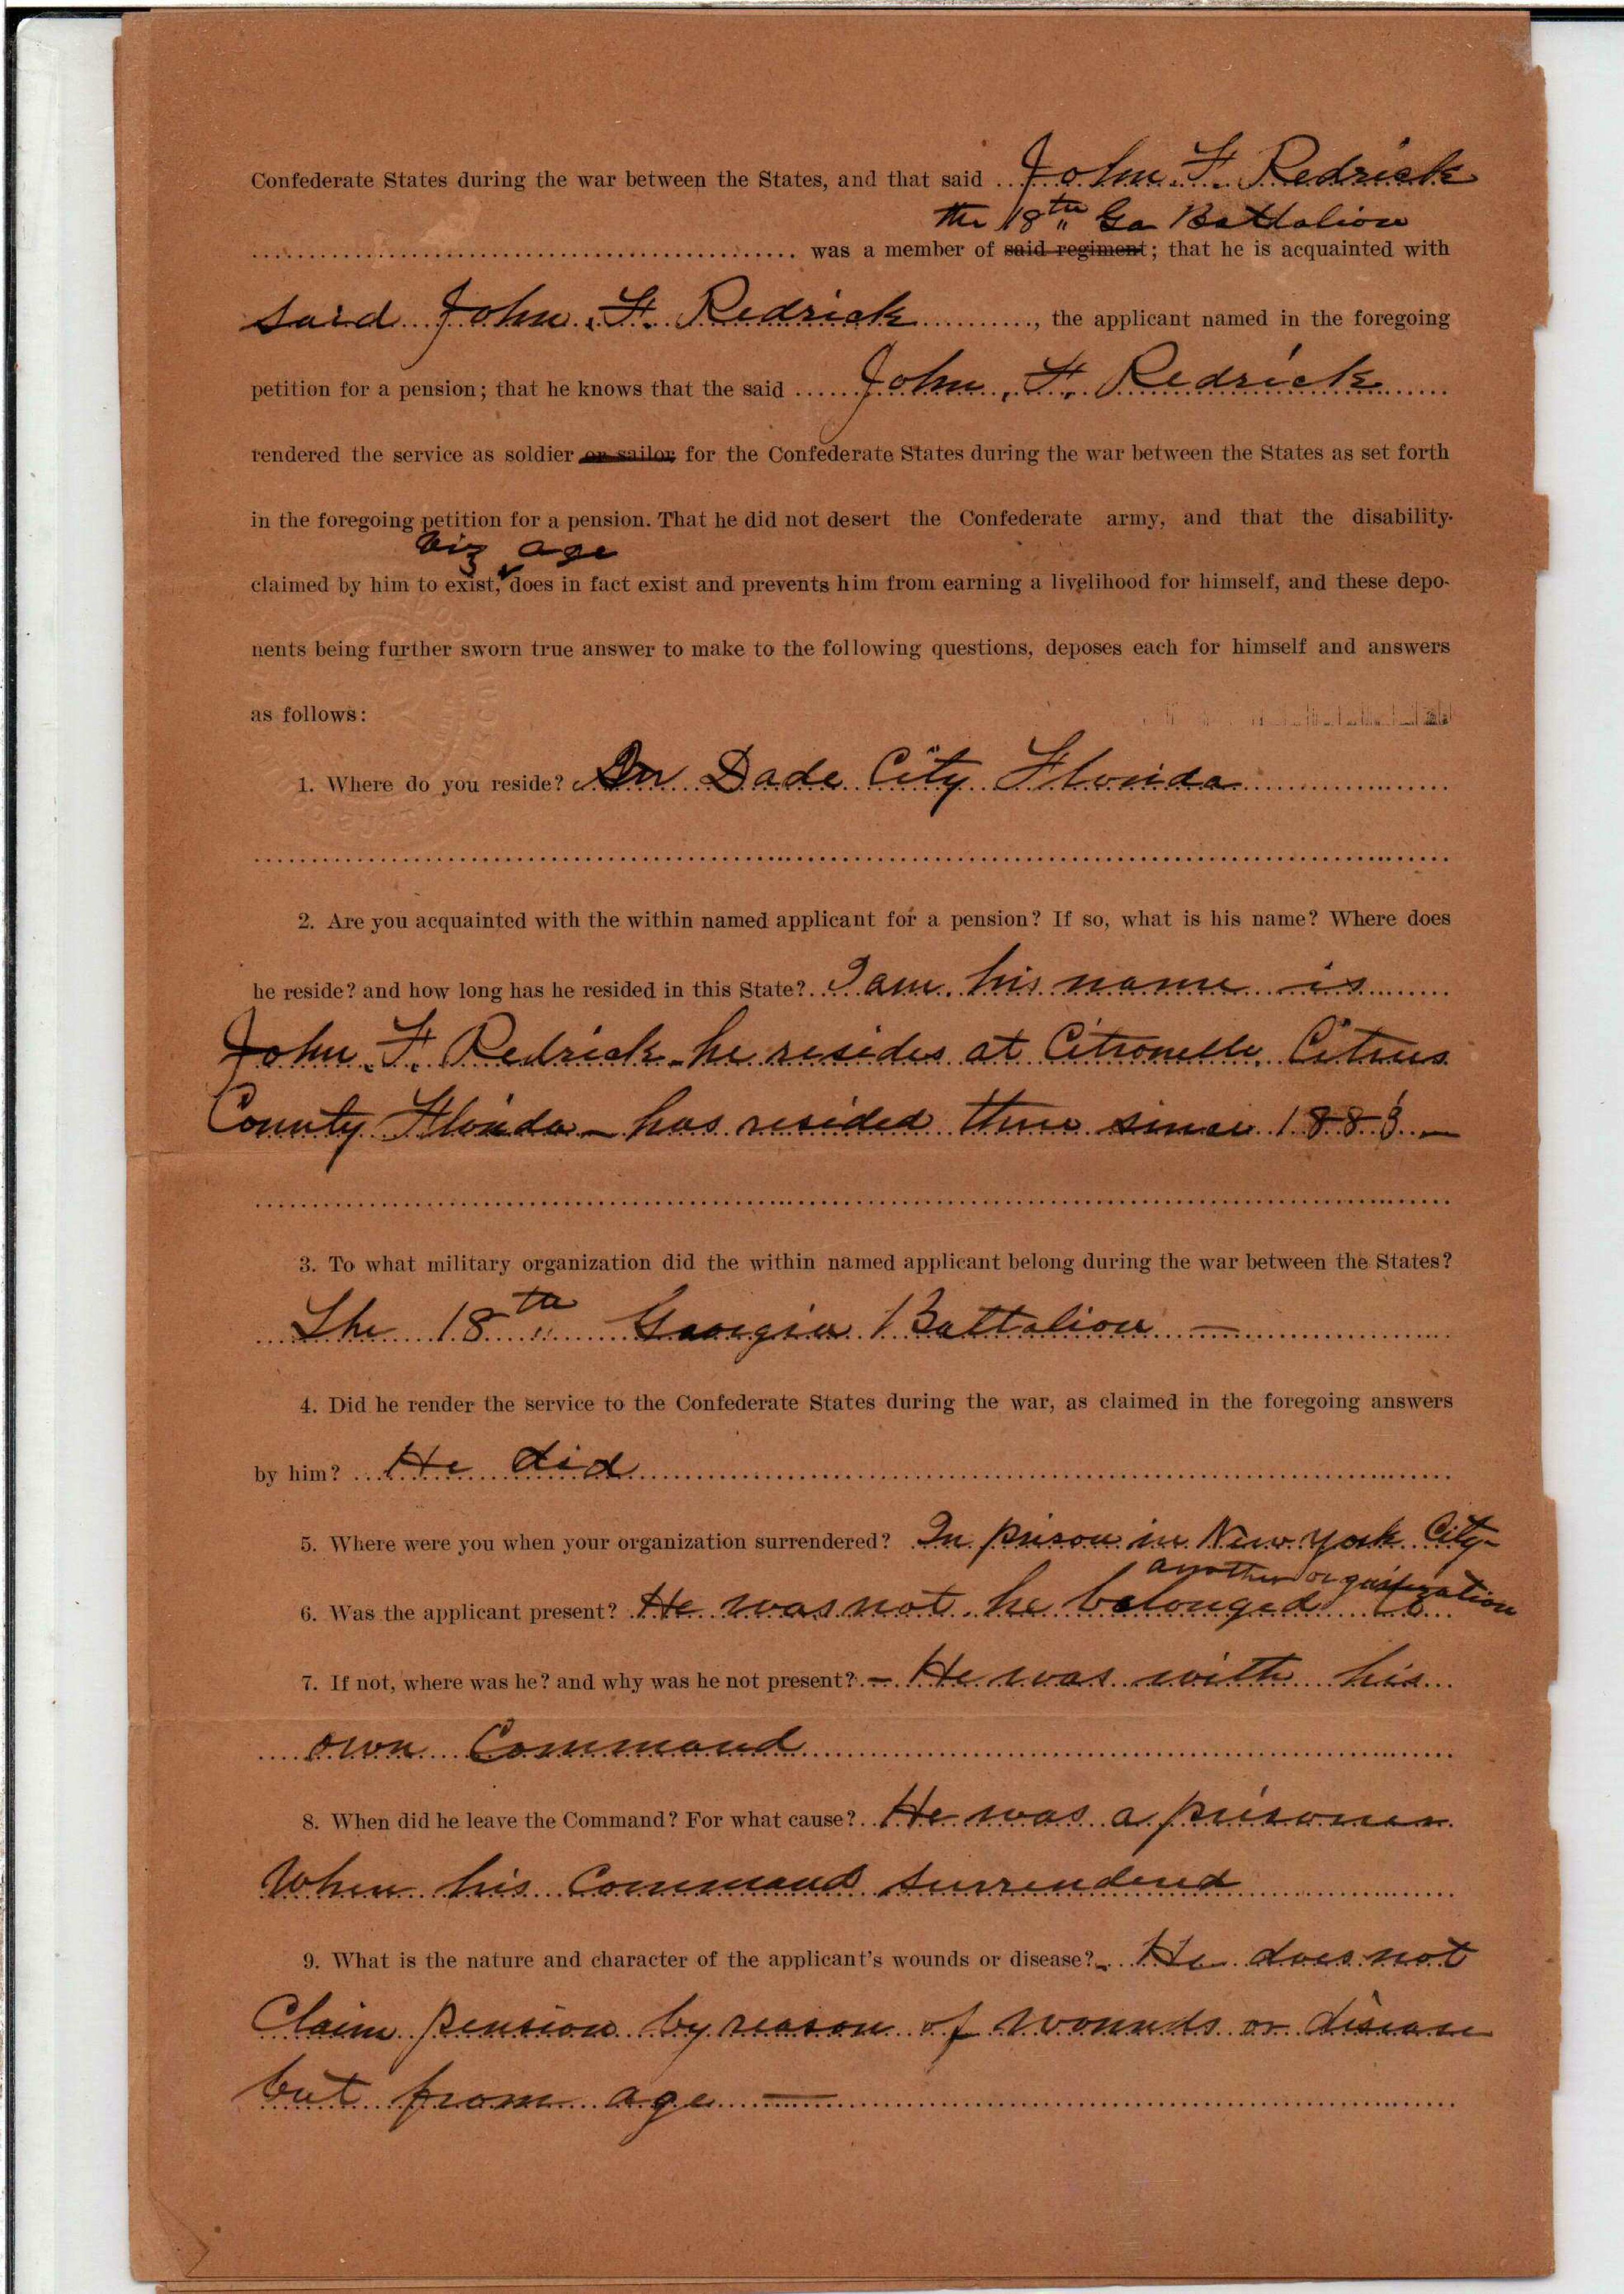 Confederate States during the war between the States, and that said John. F. Redrick
the 18th Ga Battalion
was a member of said regiment; that he is acquainted with
said John. F. Redrick, the applicant named in the foregoing
petition for a pension; that he knows that the said John. F. Redrick
rendered the service as soldier or sailor for the Confederate States during the war between the States as set forth
in the foregoing petition for a pension. That he did not desert the Confederate army, and that the disability
viz age
claimed by him to exist, does in fact exist and prevents him from earning a livelihood for himself, and these depo-
nents being further sworn true answer to make to the following questions, deposes each for himself and answers
as follows:
1. Where do you reside? In Dade City Florida
2. Are you acquainted with the within named applicant for a pension? If so, what is his name? Where does
he reside? and how long has he resided in this State? I am. his name is
John. F. Redrick he resides at Citronelle. Citrus
County Florida - has resided there since 1883 -
3. To what military organization did the within named applicant belong during the war between the States?
The 18th Georgia Battalion -
4. Did he render the service to the Confederate States during the war, as claimed in the foregoing answers
by him? He did
5. Where were you when your organization surrendered? In prison in New York City-
another organization
6. Was the applicant present? He was not. he belonged to
7. If not, where was he? and why was he not present? - He was with his
own Command
8. When did he leave the Command? For what cause? He was a prisoner
When his Command surrendered
9. What is the nature and character of the applicant's wounds or disease? He does not
Claim pension by reason of wounds or disease
but from age -